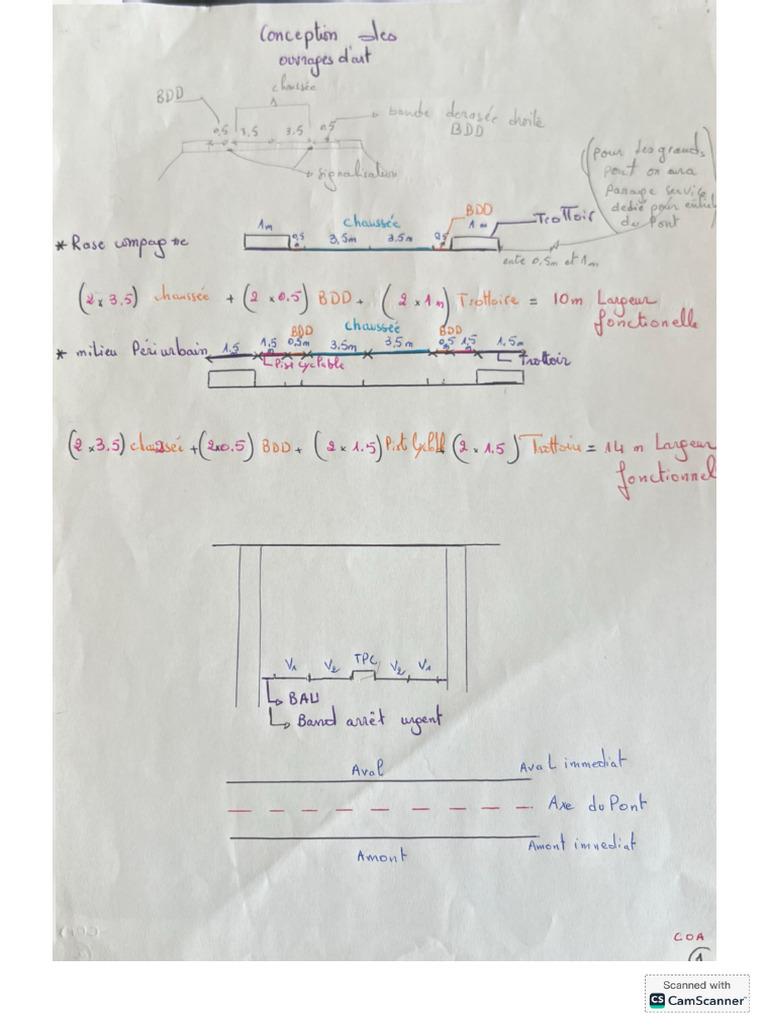 Conception des
ouvrages d'art
chaussée
BDD
0,5 3,5 3.5 0.5
bande derasée droite
BDD
signalisation
(pour les grands
pont on aura
Passage service
dedié pour
du Pont)
1m 0,5 chaussée 3,5m 3.5m 0,5 BDD 1m Trottoir
* Rase compagne
ente 0,5m et 1m
(2 x 3.5) chaussée + (2 x 0.5) BDD + (2 x 1m) Trottoire = 10m Largeur
fonctionelle
* milieu Périurbain 1,5 1,5 BDD 0,5m chaussée 3,5m 3.5m BDD 0,5 1,5 1,5m
Pist cyclable
Trottoir
(2 x 3.5) chaussée + (2x0.5) BDD + (2 x 1.5) Pist Cyclbl (2 x 1.5) Trottoire = 14 m Largeur
fonctionnel
V1 V2 TPC V2 V1
BAU
Band arrêt urgent
Aval Aval immediat
Axe du Pont
Amont Amont immediat
COA
1
Scanned with
CS CamScanner